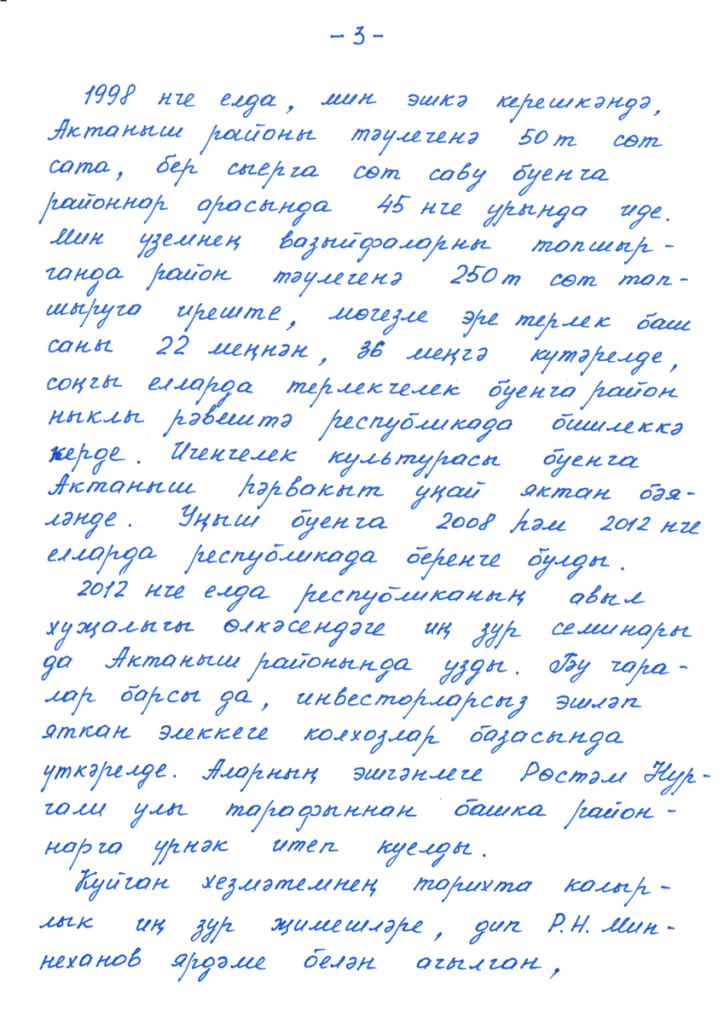 - 3 -
1998 нче елда, мин эшкә керешкәндә,
Актаныш районы тәүлегенә 50 т сөт
сата, бер сыерга сөт саву буенча
районнар арасында 45 нче урында иде.
Мин үземнең вазыйфаларны тапшыр -
ганда район тәүлегенә 250 т сөт тап -
шыруга иреште, мөгезле эре терлек баш
саны 22 меңнән, 36 меңгә күтәрелде,
соңгы елларда терлекчелек буенча район
ныклы рәвештә республикада бишлеккә
керде. Игенчелек культурасы буенча
Актаныш һәрвакыт уңай яктан бәя-
ләнде. Уңыш буенча 2008 һәм 2012 нче
елларда республикада беренче булды.
2012 нче елда республиканың авыл
хуҗалыгы өлкәсендәге иң зур семинары
да Актаныш районында узды. Бу чара -
лар барсы да, инвесторларсыз эшләп
яткан элеккеге колхозлар базасында
үткәрелде. Аларның эшчәнлеге Рөстәм Нур -
гали улы тарафыннан башка район -
нарга үрнәк итеп куелды.
Куйган хезмәтемнең тарихта калыр -
лык иң зур җимешләре, дип Р.Н. Мин -
неханов ярдәме белән ачылган,